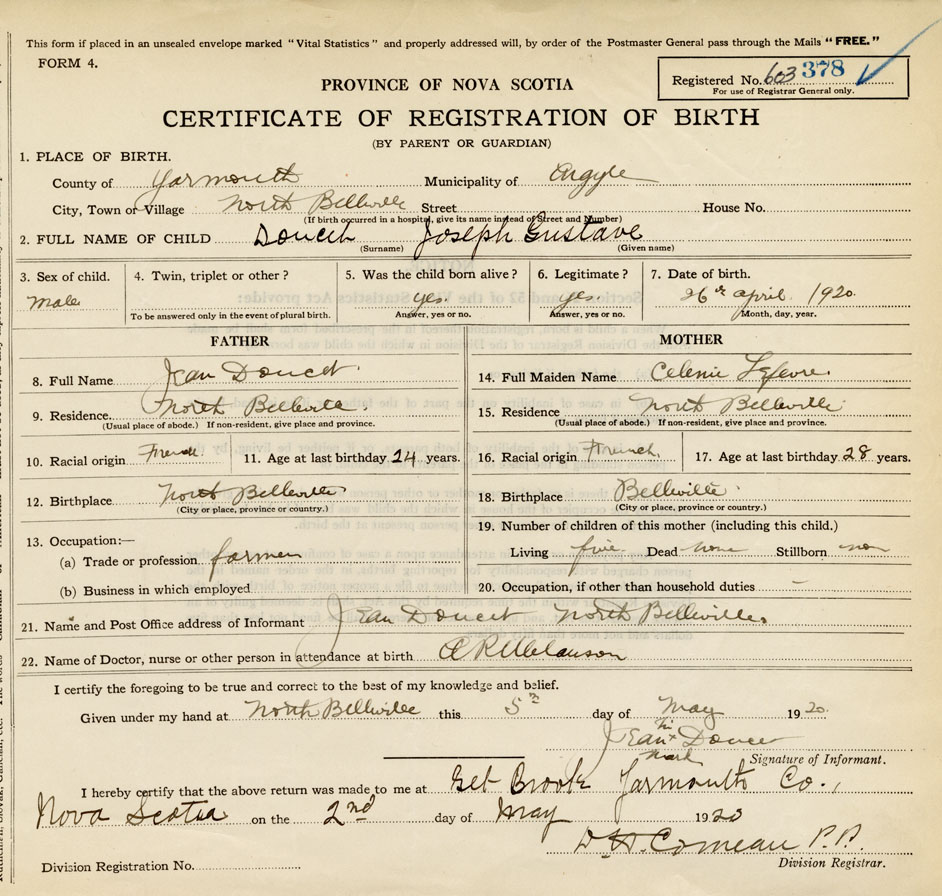 This form if placed in an unsealed envelope marked "Vital Statistics" and properly addressed will, by order of the Postmaster General pass through the Mails "FREE."
FORM 4.
Registered No. 603 378
For use of Registrar General only.
PROVINCE OF NOVA SCOTIA
CERTIFICATE OF REGISTRATION OF BIRTH
(BY PARENT OR GUARDIAN)
1. PLACE OF BIRTH.
County of Yarmouth Municipality of Argyle
City, Town or Village North Bellville Street House No.
(If birth occurred in a hospital, give its name instead of Street and Number)
2. FULL NAME OF CHILD Doucett Joseph Gustave
(Surname) (Given name)
3. Sex of child. 4. Twin, triplet or other? 5. Was the child born alive? 6. Legitimate? 7. Date of birth.
male yes. yes. 26th april 1920
To be answered only in the event of plural birth. Answer, yes or no. Answer, yes or no. Month, day, year.
FATHER
8. Full Name Jean Doucet
9. Residence. North Bellville.
(Usual place of abode.) If non-resident, give place and province.
10. Racial origin French 11. Age at last birthday 24 years.
12. Birthplace North Bellville
(City or place, province or country.)
13. Occupation:—
(a) Trade or profession farmer
(b) Business in which employed
MOTHER
14. Full Maiden Name Celenie Lefevre.
15. Residence North Bellville
(Usual place of abode.) If non-resident, give place and province.
16. Racial origin French. 17. Age at last birthday 28 years.
18. Birthplace Bellville
(City or place, province or country.)
19. Number of children of this mother (including this child.)
Living five Dead none Stillborn non
20. Occupation, if other than household duties —
21. Name and Post Office address of Informant Jean Doucet North Bellville.
22. Name of Doctor, nurse or other person in attendance at birth A R Melanson
I certify the foregoing to be true and correct to the best of my knowledge and belief.
Given under my hand at North Bellville this 5th day of May 1920.
his
Jean x Doucet
mark
Signature of Informant.
I hereby certify that the above return was made to me at Eel Brook Yarmouth Co.,
Nova Scotia on the 2nd day of May 1920
Comeau P.P.
Division Registration No. Division Registrar.